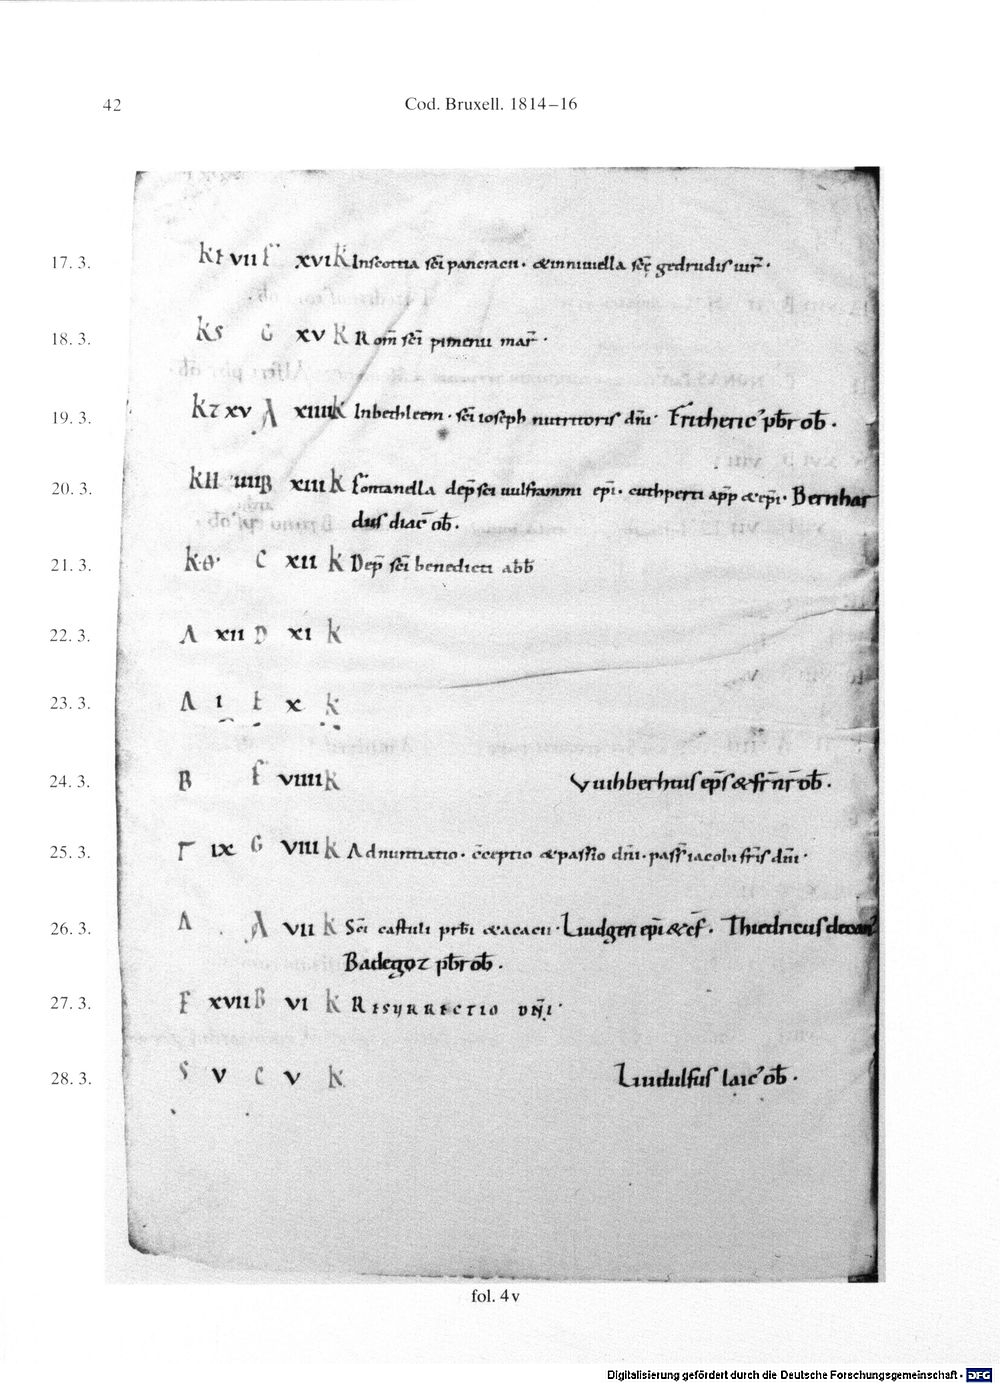 42
Cod. Bruxell. 1814–16
17. 3. kſ vii f xvi k Inscottia sc̄i pancracii · & inniuuella sc̄ę gedrudis uir̄ ·
18. 3. ks G xv k Rom̄ sc̄i pimenii mar̄ ·
19. 3. kz xv A xiiii k Inbethleem · sc̄i ioseph nutritoris dn̄i · Frithericꝰ pb̄r ob̄ ·
20. 3. kii iiii B xiii k fontanella dep̄ sc̄i uulframmi ep̄i · cuthperti ap̄p & ep̄i · Bernhar
dus diac̄ ob̄ ·
21. 3. kθ · C xii k Dep̄ sc̄i benedicti abb̄
22. 3. Λ xii D xi k
23. 3. Λ i E x k
24. 3. B f viiii k Vuihbertus ep̄s & fr̄ nr̄ ob̄ ·
25. 3. Γ ix G viii k Adnuntiatio · c̄ceptio & passio dn̄i · pass̄ iacobi fr̄is dn̄i ·
26. 3. Δ A vii k Sc̄i castuli prb̄i & acacii · Liudgeri ep̄i & c̄f · Thiedricus decan̄
Badegoz pb̄r ob̄ ·
27. 3. F xvii B vi k Resurrectio dn̄i ·
28. 3. S v C v k Liudulfus laicꝰ ob̄ ·
fol. 4v
Digitalisierung gefördert durch die Deutsche Forschungsgemeinschaft - DFG